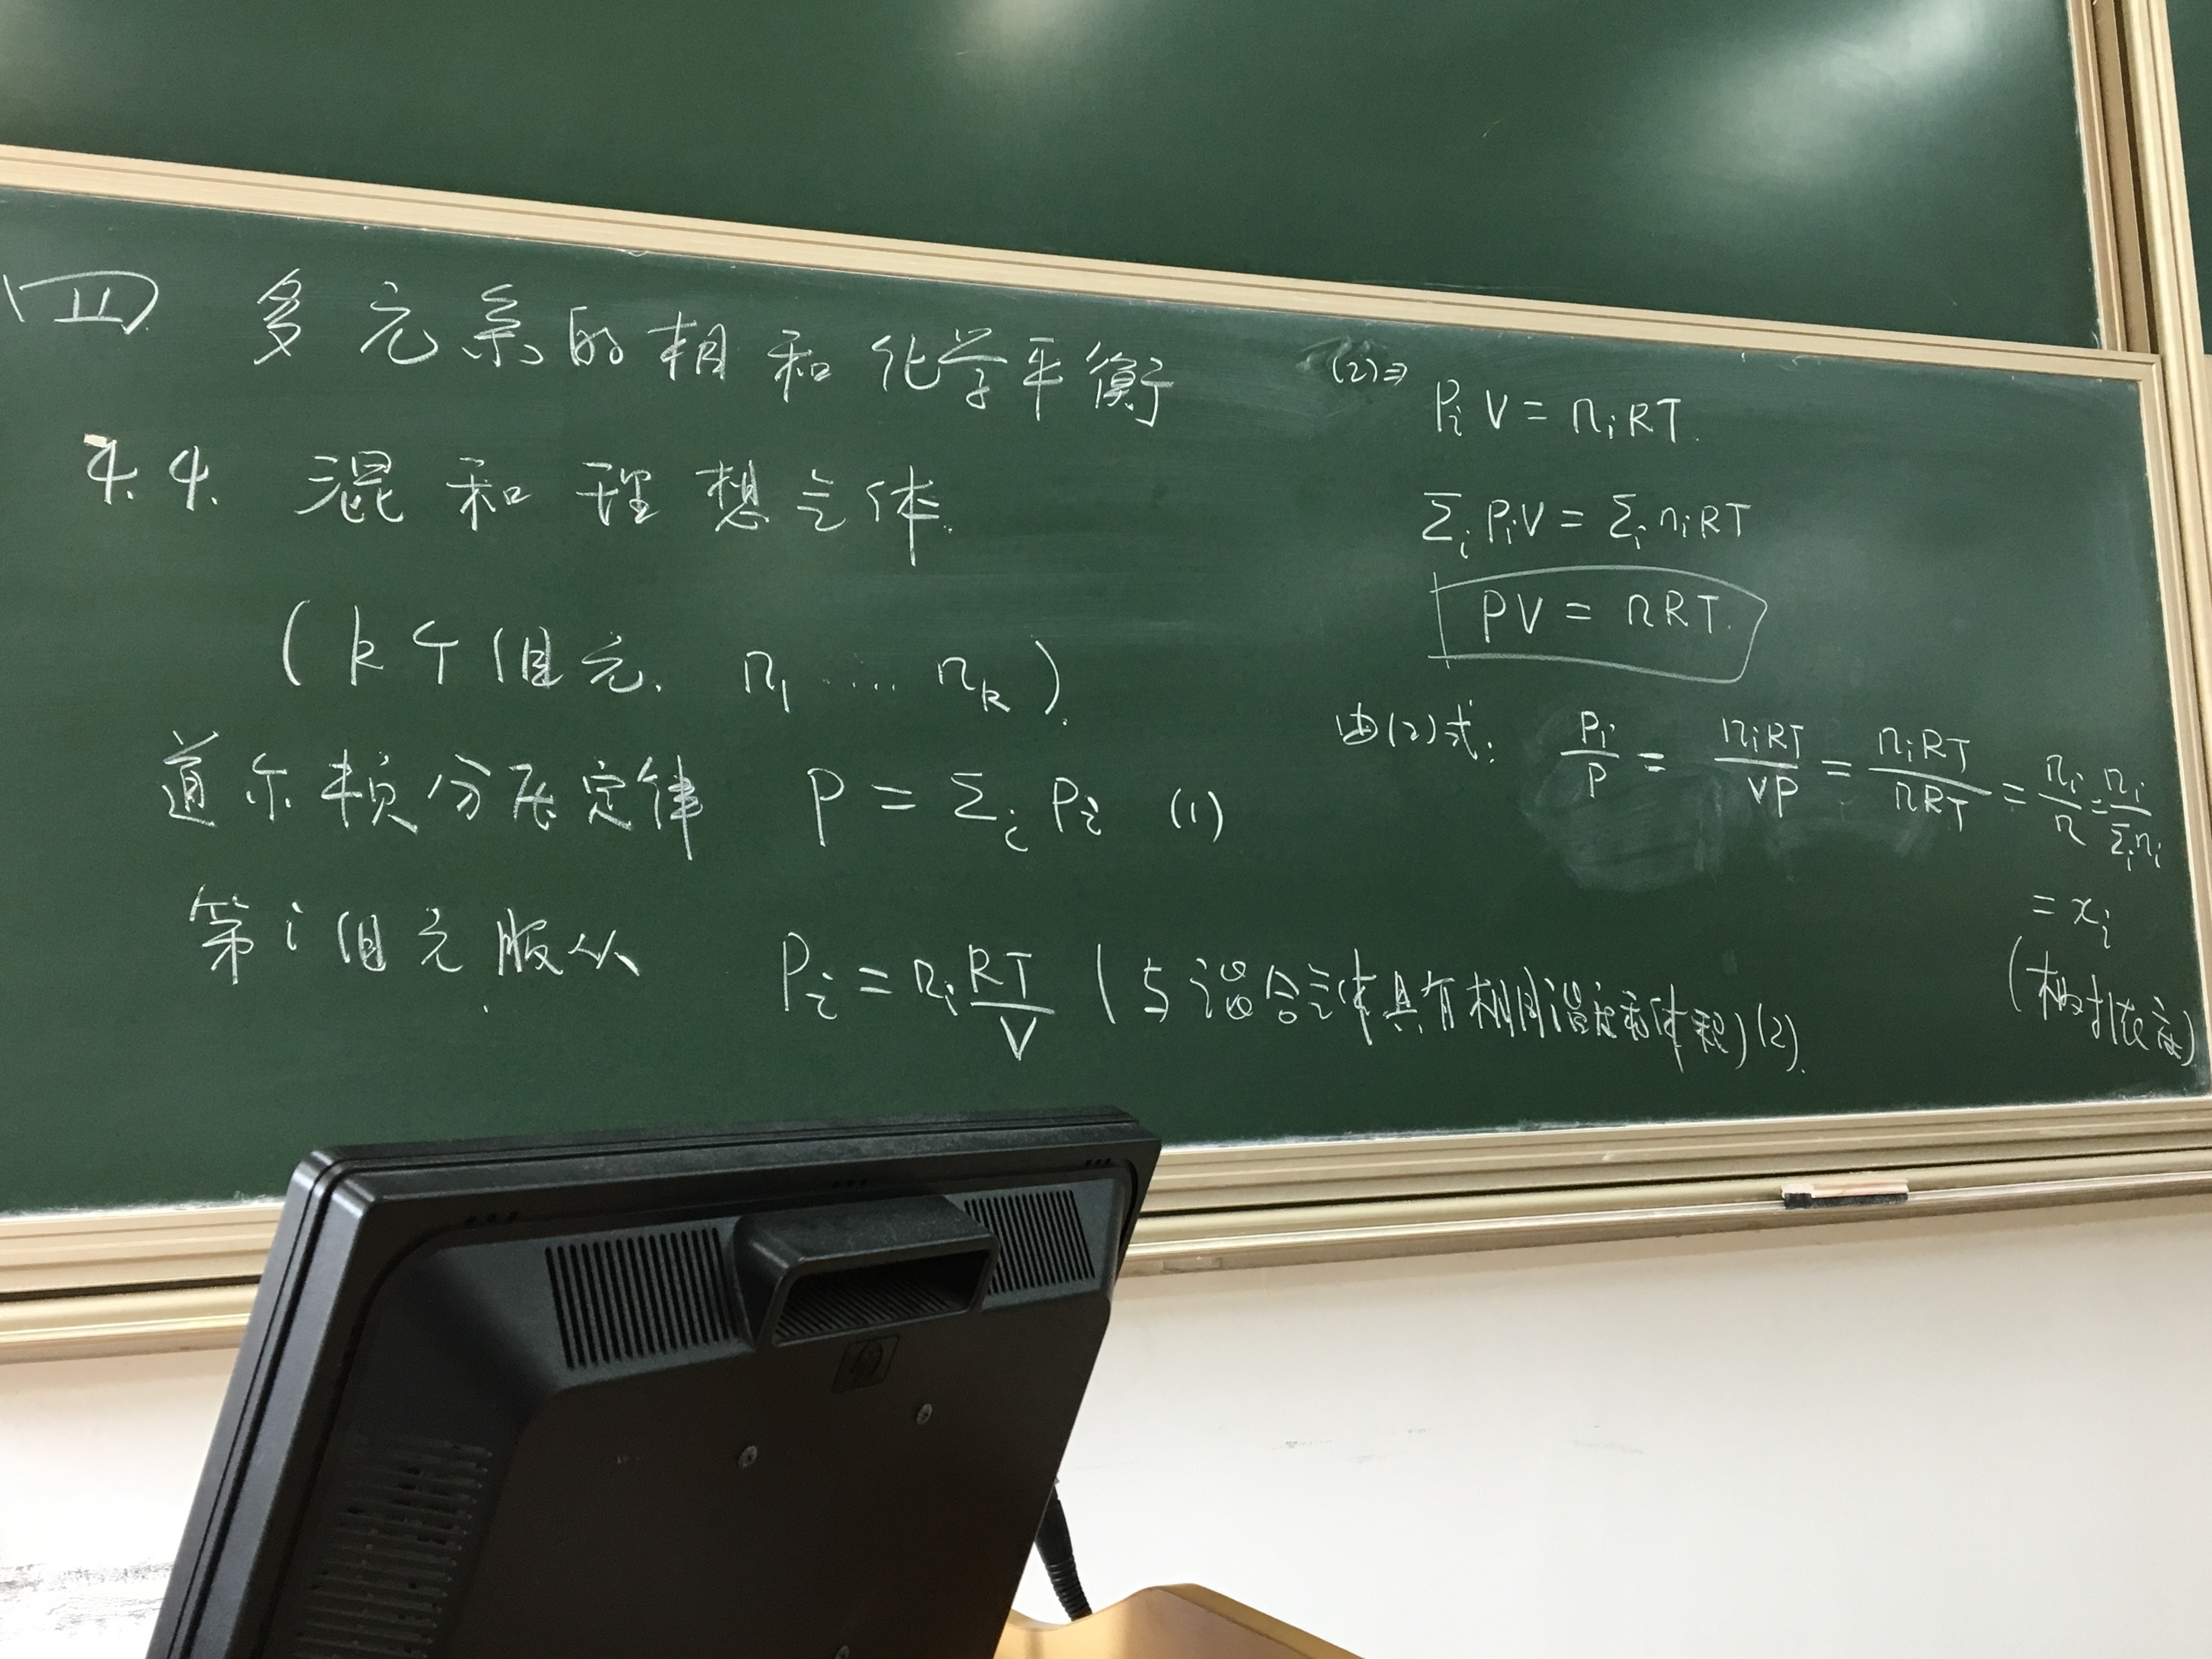 四 多元系的相和化学平衡
4.4. 混和理想气体.
(k个组元. n₁ .... nₖ).
道尔顿分压定律 P = Σᵢ Pᵢ (1)
第i组元服从 Pᵢ = nᵢ RT/V (与混合气体具有相同温度和体积)(2).
(2)⇒ Pᵢ V = nᵢ RT.
Σᵢ PᵢV = Σᵢ nᵢRT
PV = nRT.
由(2)式: Pᵢ/P = nᵢRT/VP = nᵢRT/nRT = nᵢ/n = nᵢ/Σᵢnᵢ
= xᵢ
(相对浓度)
hp